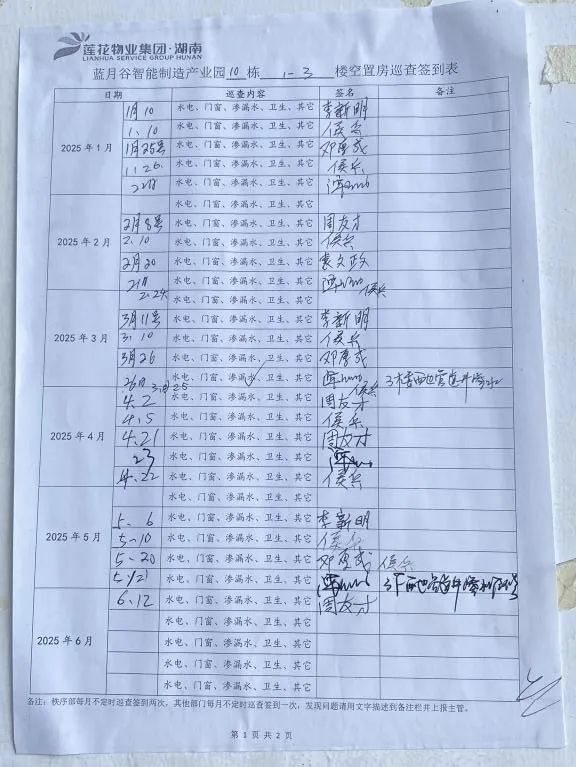 莲花物业集团·湖南
LIANHUA SERVICE GROUP HUNAN
蓝月谷智能制造产业园10栋 1-3 楼空置房巡查签到表
日期 巡查内容 签名 备注
2025年1月
1月10 水电、门窗、渗漏水、卫生、其它 李新明
1.10 水电、门窗、渗漏水、卫生、其它 侯兵
1月25号 水电、门窗、渗漏水、卫生、其它 邓厚成
1.26. 水电、门窗、渗漏水、卫生、其它 侯兵
水电、门窗、渗漏水、卫生、其它
2025年2月
水电、门窗、渗漏水、卫生、其它
2月8号 水电、门窗、渗漏水、卫生、其它 周友才
2.10 水电、门窗、渗漏水、卫生、其它 侯兵
2月20 水电、门窗、渗漏水、卫生、其它 袁文政
水电、门窗、渗漏水、卫生、其它
2.24 侯兵
2025年3月
3月11号 水电、门窗、渗漏水、卫生、其它 李新明
3.10 水电、门窗、渗漏水、卫生、其它 侯兵
3月26 水电、门窗、渗漏水、卫生、其它 邓厚成
26日 水电、门窗、渗漏水、卫生、其它
3.25 侯兵
2025年4月
4.2 水电、门窗、渗漏水、卫生、其它 周友才
4.5 水电、门窗、渗漏水、卫生、其它 侯兵
4.21 水电、门窗、渗漏水、卫生、其它 周友才
23 水电、门窗、渗漏水、卫生、其它
4.22 水电、门窗、渗漏水、卫生、其它 侯兵
2025年5月
水电、门窗、渗漏水、卫生、其它
5.6 水电、门窗、渗漏水、卫生、其它 李新明
5-10 水电、门窗、渗漏水、卫生、其它 侯兵
5-20 水电、门窗、渗漏水、卫生、其它 邓厚成 侯兵
5/21 水电、门窗、渗漏水、卫生、其它
2025年6月
6.12 水电、门窗、渗漏水、卫生、其它 周友才
水电、门窗、渗漏水、卫生、其它
水电、门窗、渗漏水、卫生、其它
水电、门窗、渗漏水、卫生、其它
水电、门窗、渗漏水、卫生、其它
备注：秩序部每月不定时巡查签到两次，其他部门每月不定时巡查签到一次，发现问题请用文字描述到备注栏并上报主管。
第 1 页 共 2 页